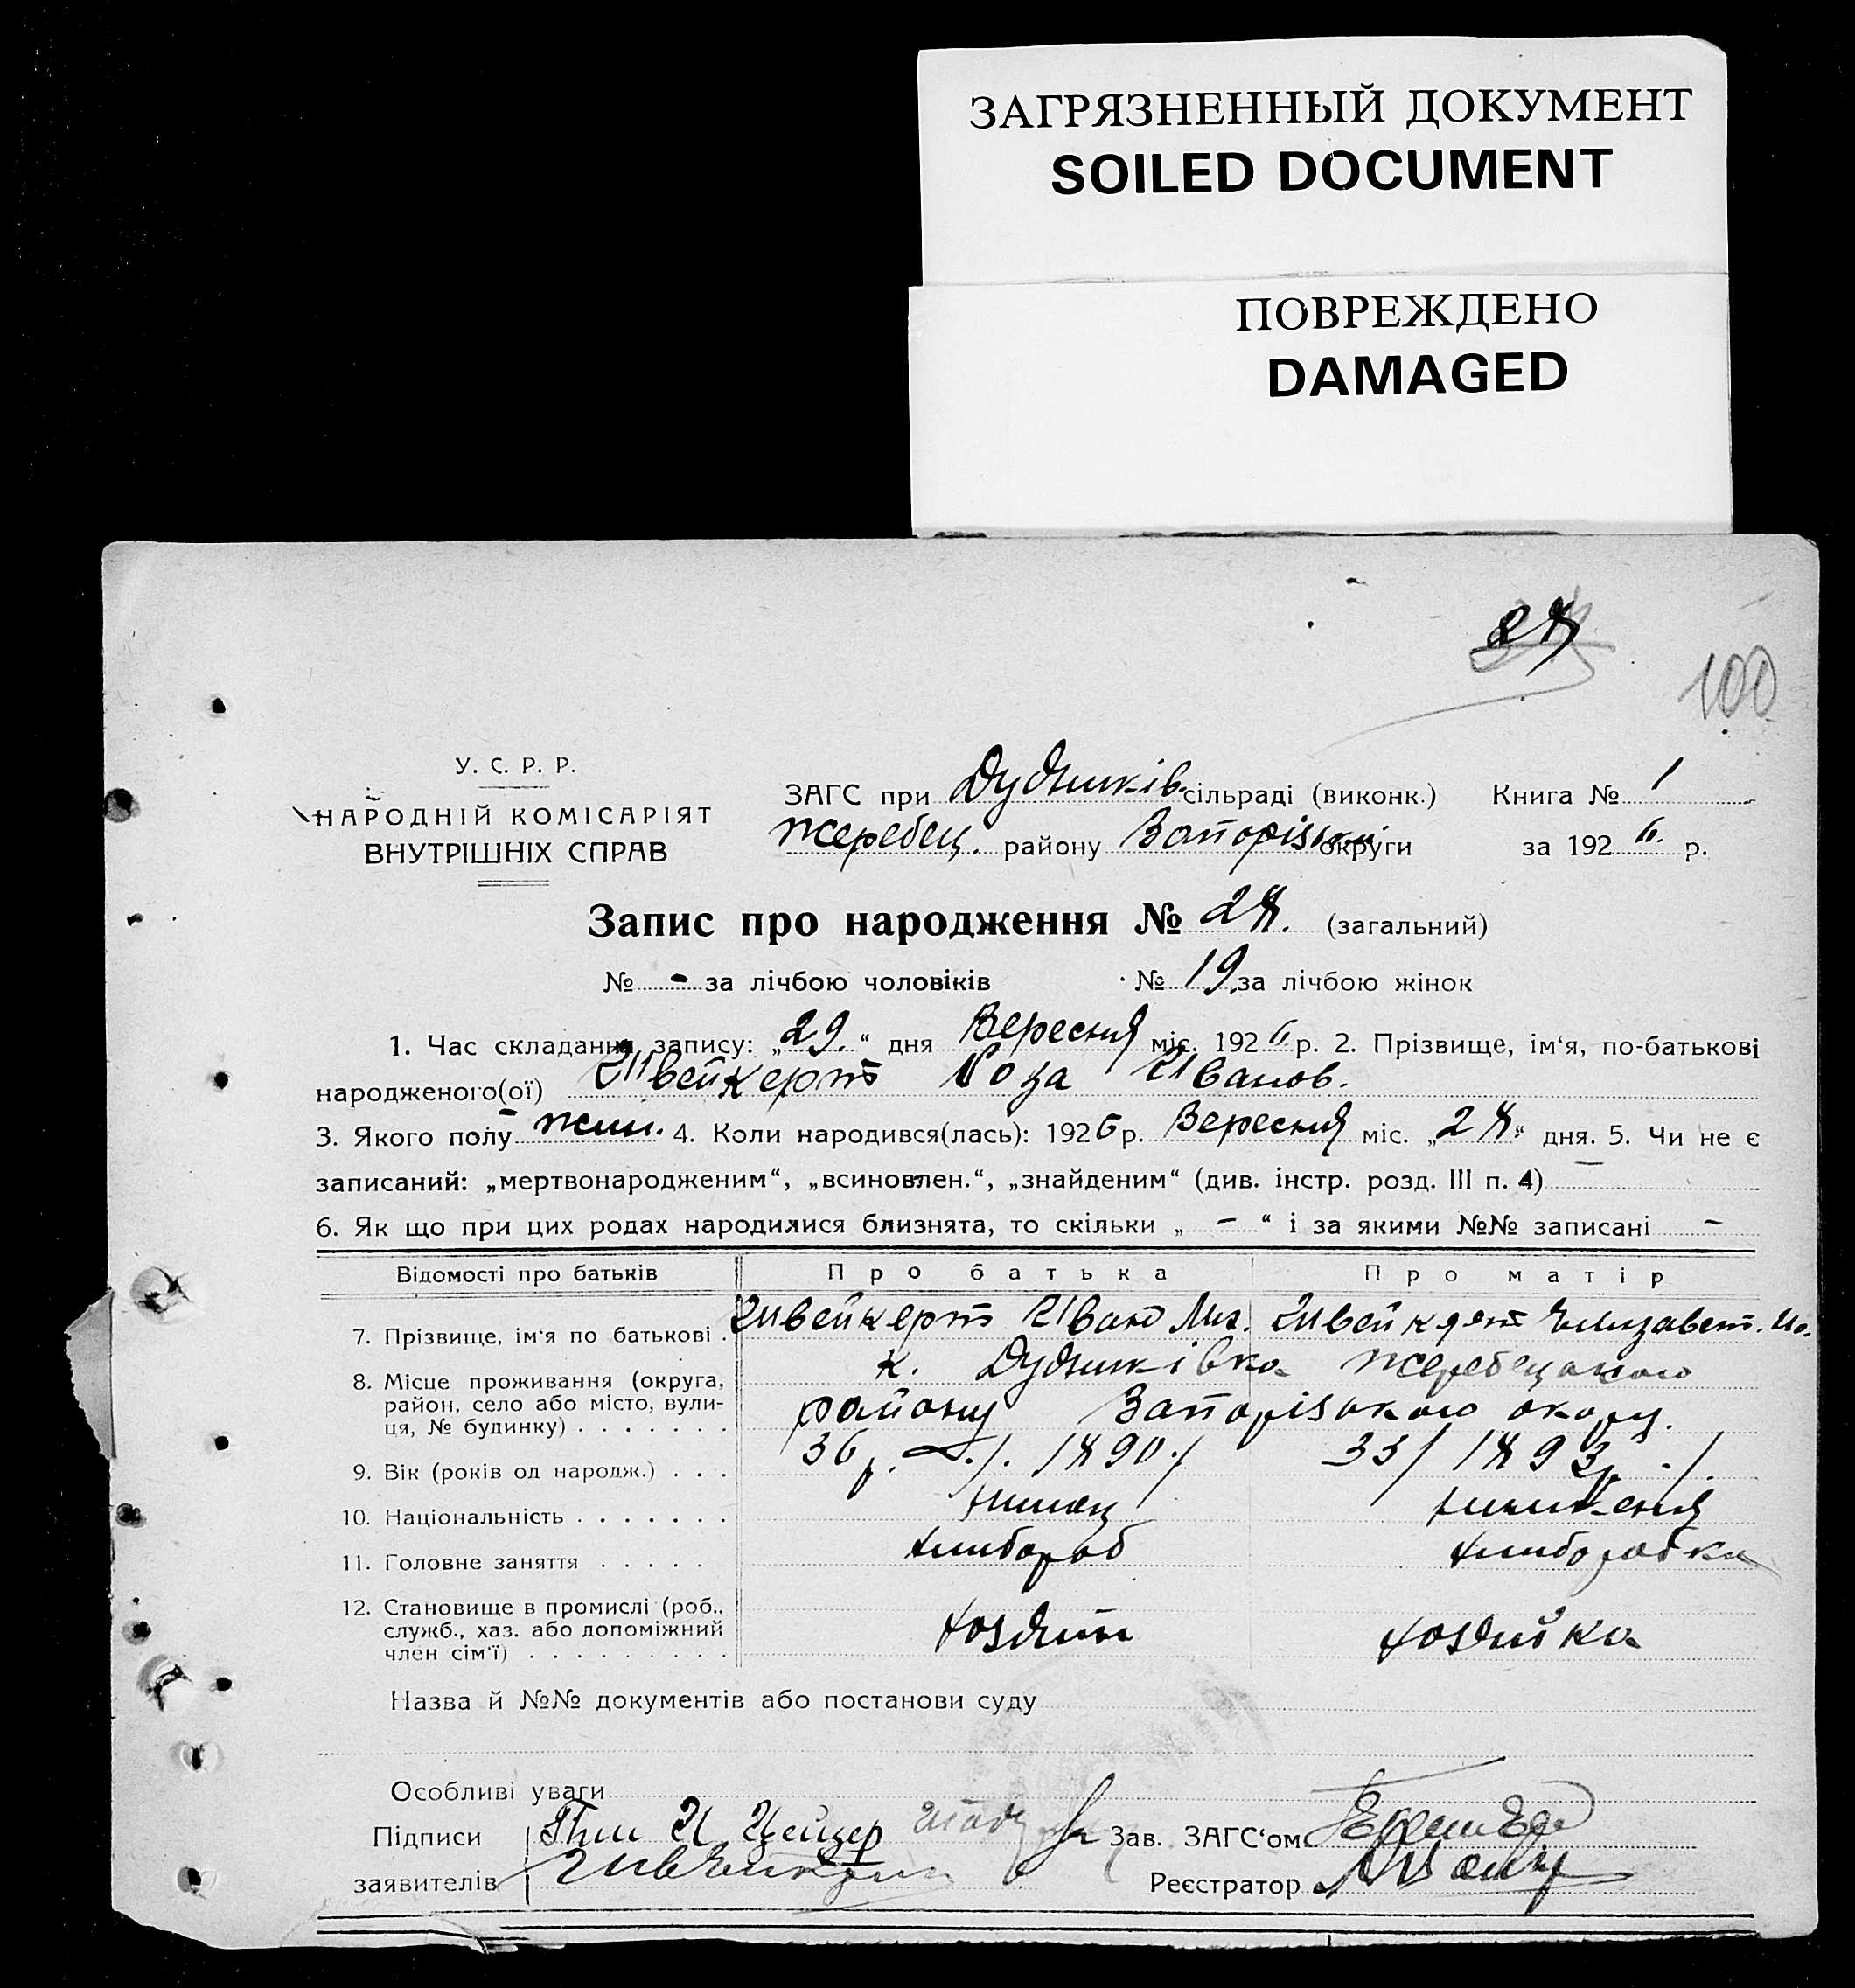 ЗАГРЯЗНЕННЫЙ ДОКУМЕНТ
SOILED DOCUMENT
ПОВРЕЖДЕНО
DAMAGED
28
100
У. С. Р. Р.
НАРОДНІЙ КОМІСАРІЯТ
ВНУТРІШНІХ СПРАВ
ЗАГС при Дудників. сільраді (виконк.) Книга № 1
Жеребец. району Запорізької округи за 1926 р.
Запис про народження № 28. (загальний)
№ - за лічбою чоловіків № 19. за лічбою жінок
1. Час складання запису: „29.“ дня Вересня міс. 1926 р. 2. Прізвище, ім'я, по-батькові
народженого(ої) Швейкерт Роза Иванов.
3. Якого полу жин. 4. Коли народився(лась): 1926 р. Вересня міс. „28“ дня. 5. Чи не є
записаний: „мертвонародженим“, „всиновлен.“, „знайденим“ (див. інстр. розд. III п. 4) —
6. Як що при цих родах народилися близнята, то скільки „ - “ і за якими №№ записані -
Відомості про батьків Про батька Про матір
7. Прізвище, ім'я по батькові . Швейкерт Иван Швейкерт Елизавет.
8. Місце проживання (округа, район, село або місто, вулиця, № будинку) . . . . . . . к. Дудниківка Жеребецького
району Запорізького округ.
9. Вік (років од народж.) . . . 36 р. 1890 33/ 1893 р.
10. Національність . . . . . . . нимец нимкеня
11. Головне заняття . . . . . хлибороб хлиборобка
12. Становище в промислі (роб., служб., хаз. або допоміжний член сім'ї) . . . . . . . . . хозяин хозяйка
Назва й №№ документів або постанови суду
Особливі уваги
Підписи И Цейзер Зав. ЗАГС'ом
заявителів Реєстратор